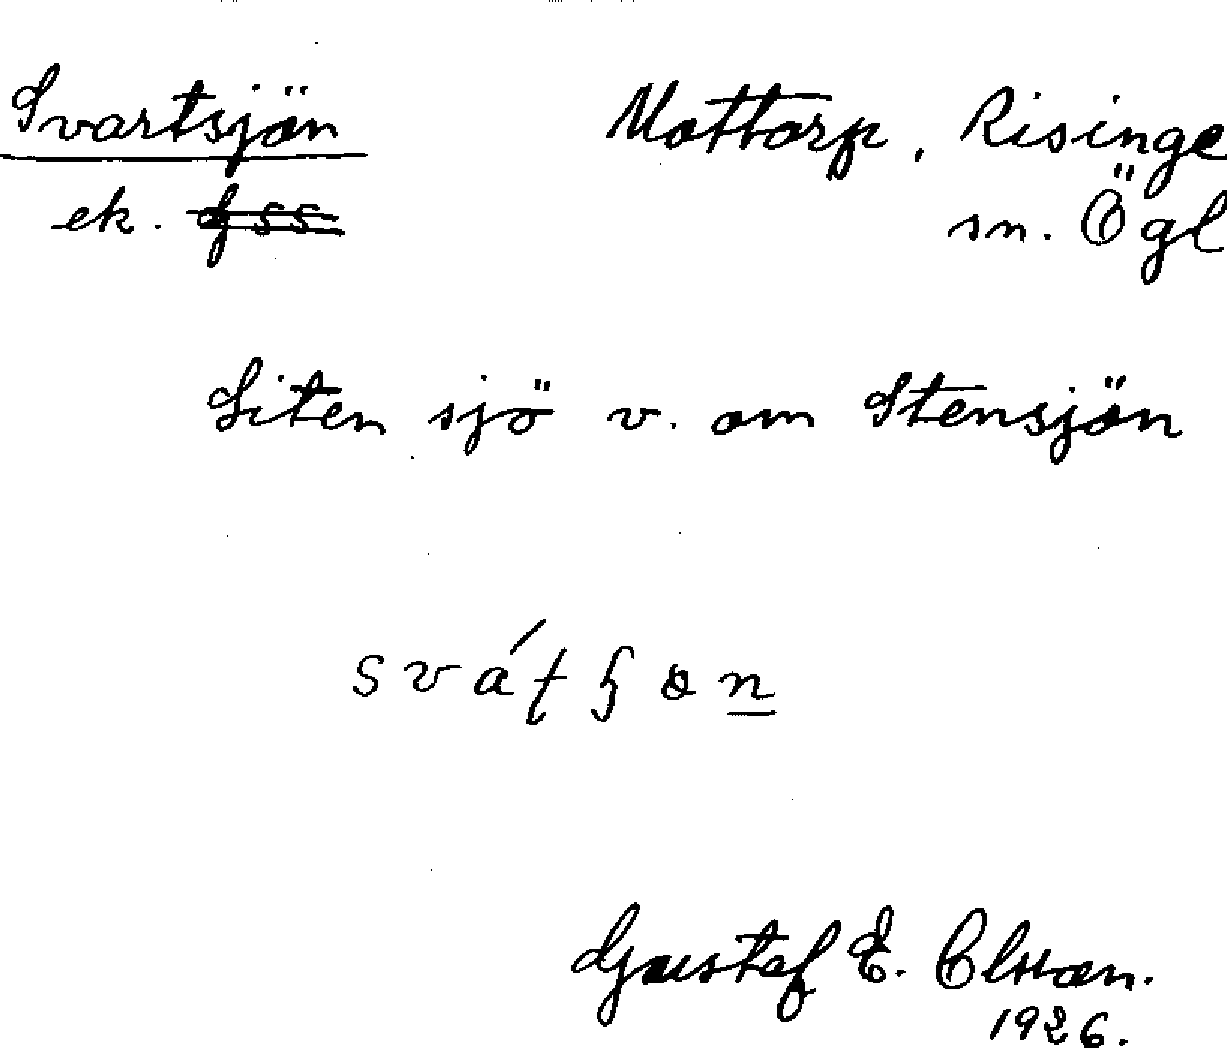 Svartsjön Mottorp, Risinge
ek. sn. Ögl
Liten sjö v. om Stensjön
Gustaf E. Olsson.
1926.